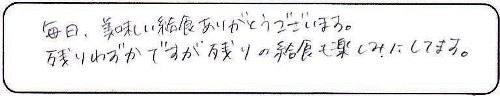 毎日、美味しい給食ありがとうございます。
残りわずかですが残りの給食も楽しみにしてます。